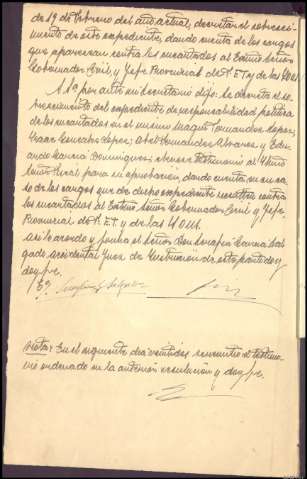 de 19 de Febrero del año actual, decretar el sobresei-
miento de este expediente, dando cuenta de los cargos
que aparezcan contra los encartados al Exmo Señor
Gobernador Civil y Jefe Provincial de F.E.T y de las J.O.N.S.
S.Sª por ante mi Secretario dijo: Se decreta el so-
breseimiento del expediente de responsabilidad política
de los encartados en el mismo Fernandez Lopez,
Isaac Gonzalez Lopez, Abel Fernandez Alvarez y Edu-
ardo Garcia Dominguez; elevese testimonio al
Señor Fiscal para su aprobacion, dando cuenta en su ca-
so de los cargos que de dicho expediente resulten contra
los encartados al Exmo Señor Gobernador Civil y Jefe
Provincial de F.E.T y de las J.O.N.S.
Asi lo acordo y firma el Señor Don Serafin Garcia Sal-
gado accidental Juez de Instruccion de este partido y
doy fe.
Nota: En el siguiente dia veintidos se remitio el testimo-
nio ordenado en la anterior resolucion y doy fe.